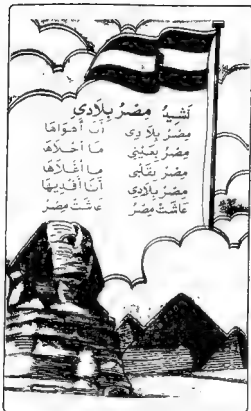 نَشِيدُ مِصْرُ بِلَادِي
مِصْرُ بِلَادِي أَنَا أَهْوَاهَا
مِصْرُ بِعَيْنِي مَا أَحْلَاهَا
مِصْرُ بِقَلْبِي مَا أَغْلَاهَا
مِصْرُ بِلَادِي أَنَا أَفْدِيهَا
عَاشَتْ مِصْرُ عَاشَتْ مِصْرُ